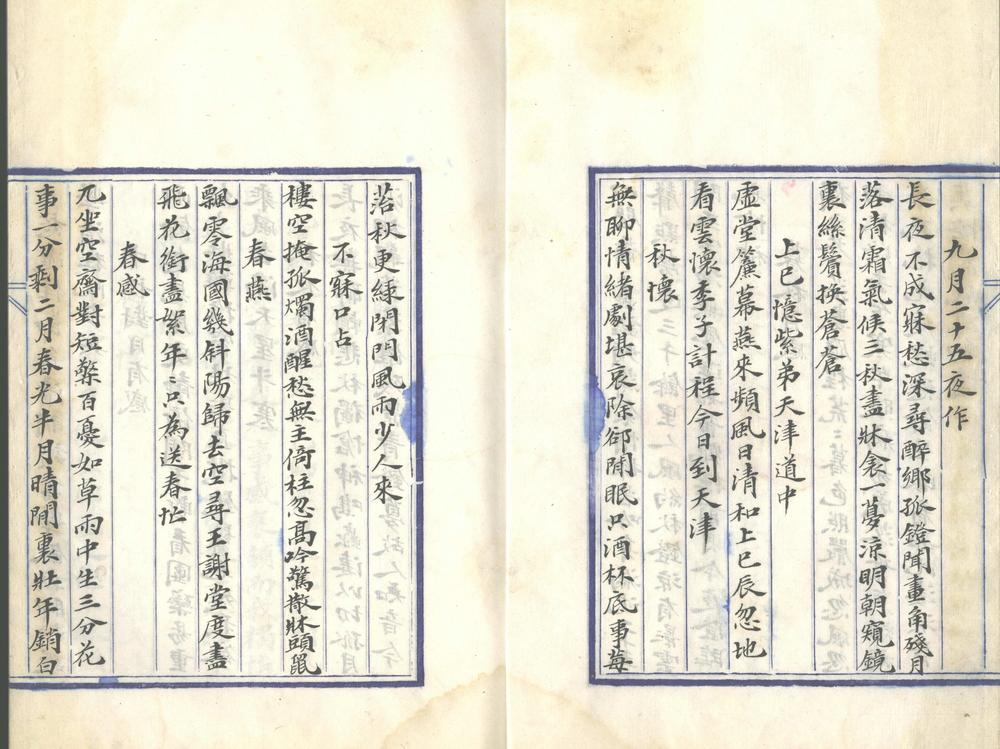 九月二十五夜作
長夜不成寐愁深尋醉鄉孤鐙聞畫角殘月
落清霜氣候三秋盡牀衾一夢涼明朝窺鏡
裏絲鬢換蒼蒼
上巳憶紫弟天津道中
虛堂簾幕燕來頻風日清和上巳辰忽地
看雲懷季子計程今日到天津
秋懷
無聊情緒劇堪哀除卻閒眠只酒杯底事每
落秋更綠閉門風雨少人來
不寐口占
樓空掩孤燭酒醒愁無主倚柱忽高吟驚撤牀頭鼠
春燕
飄零海國幾斜陽歸去空尋王謝堂度盡
飛花銜盡絮年〻只為送春忙
春感
兀坐空齋對短檠百憂如草雨中生三分花
事一分剩二月春光半月晴閒裏壯年銷白